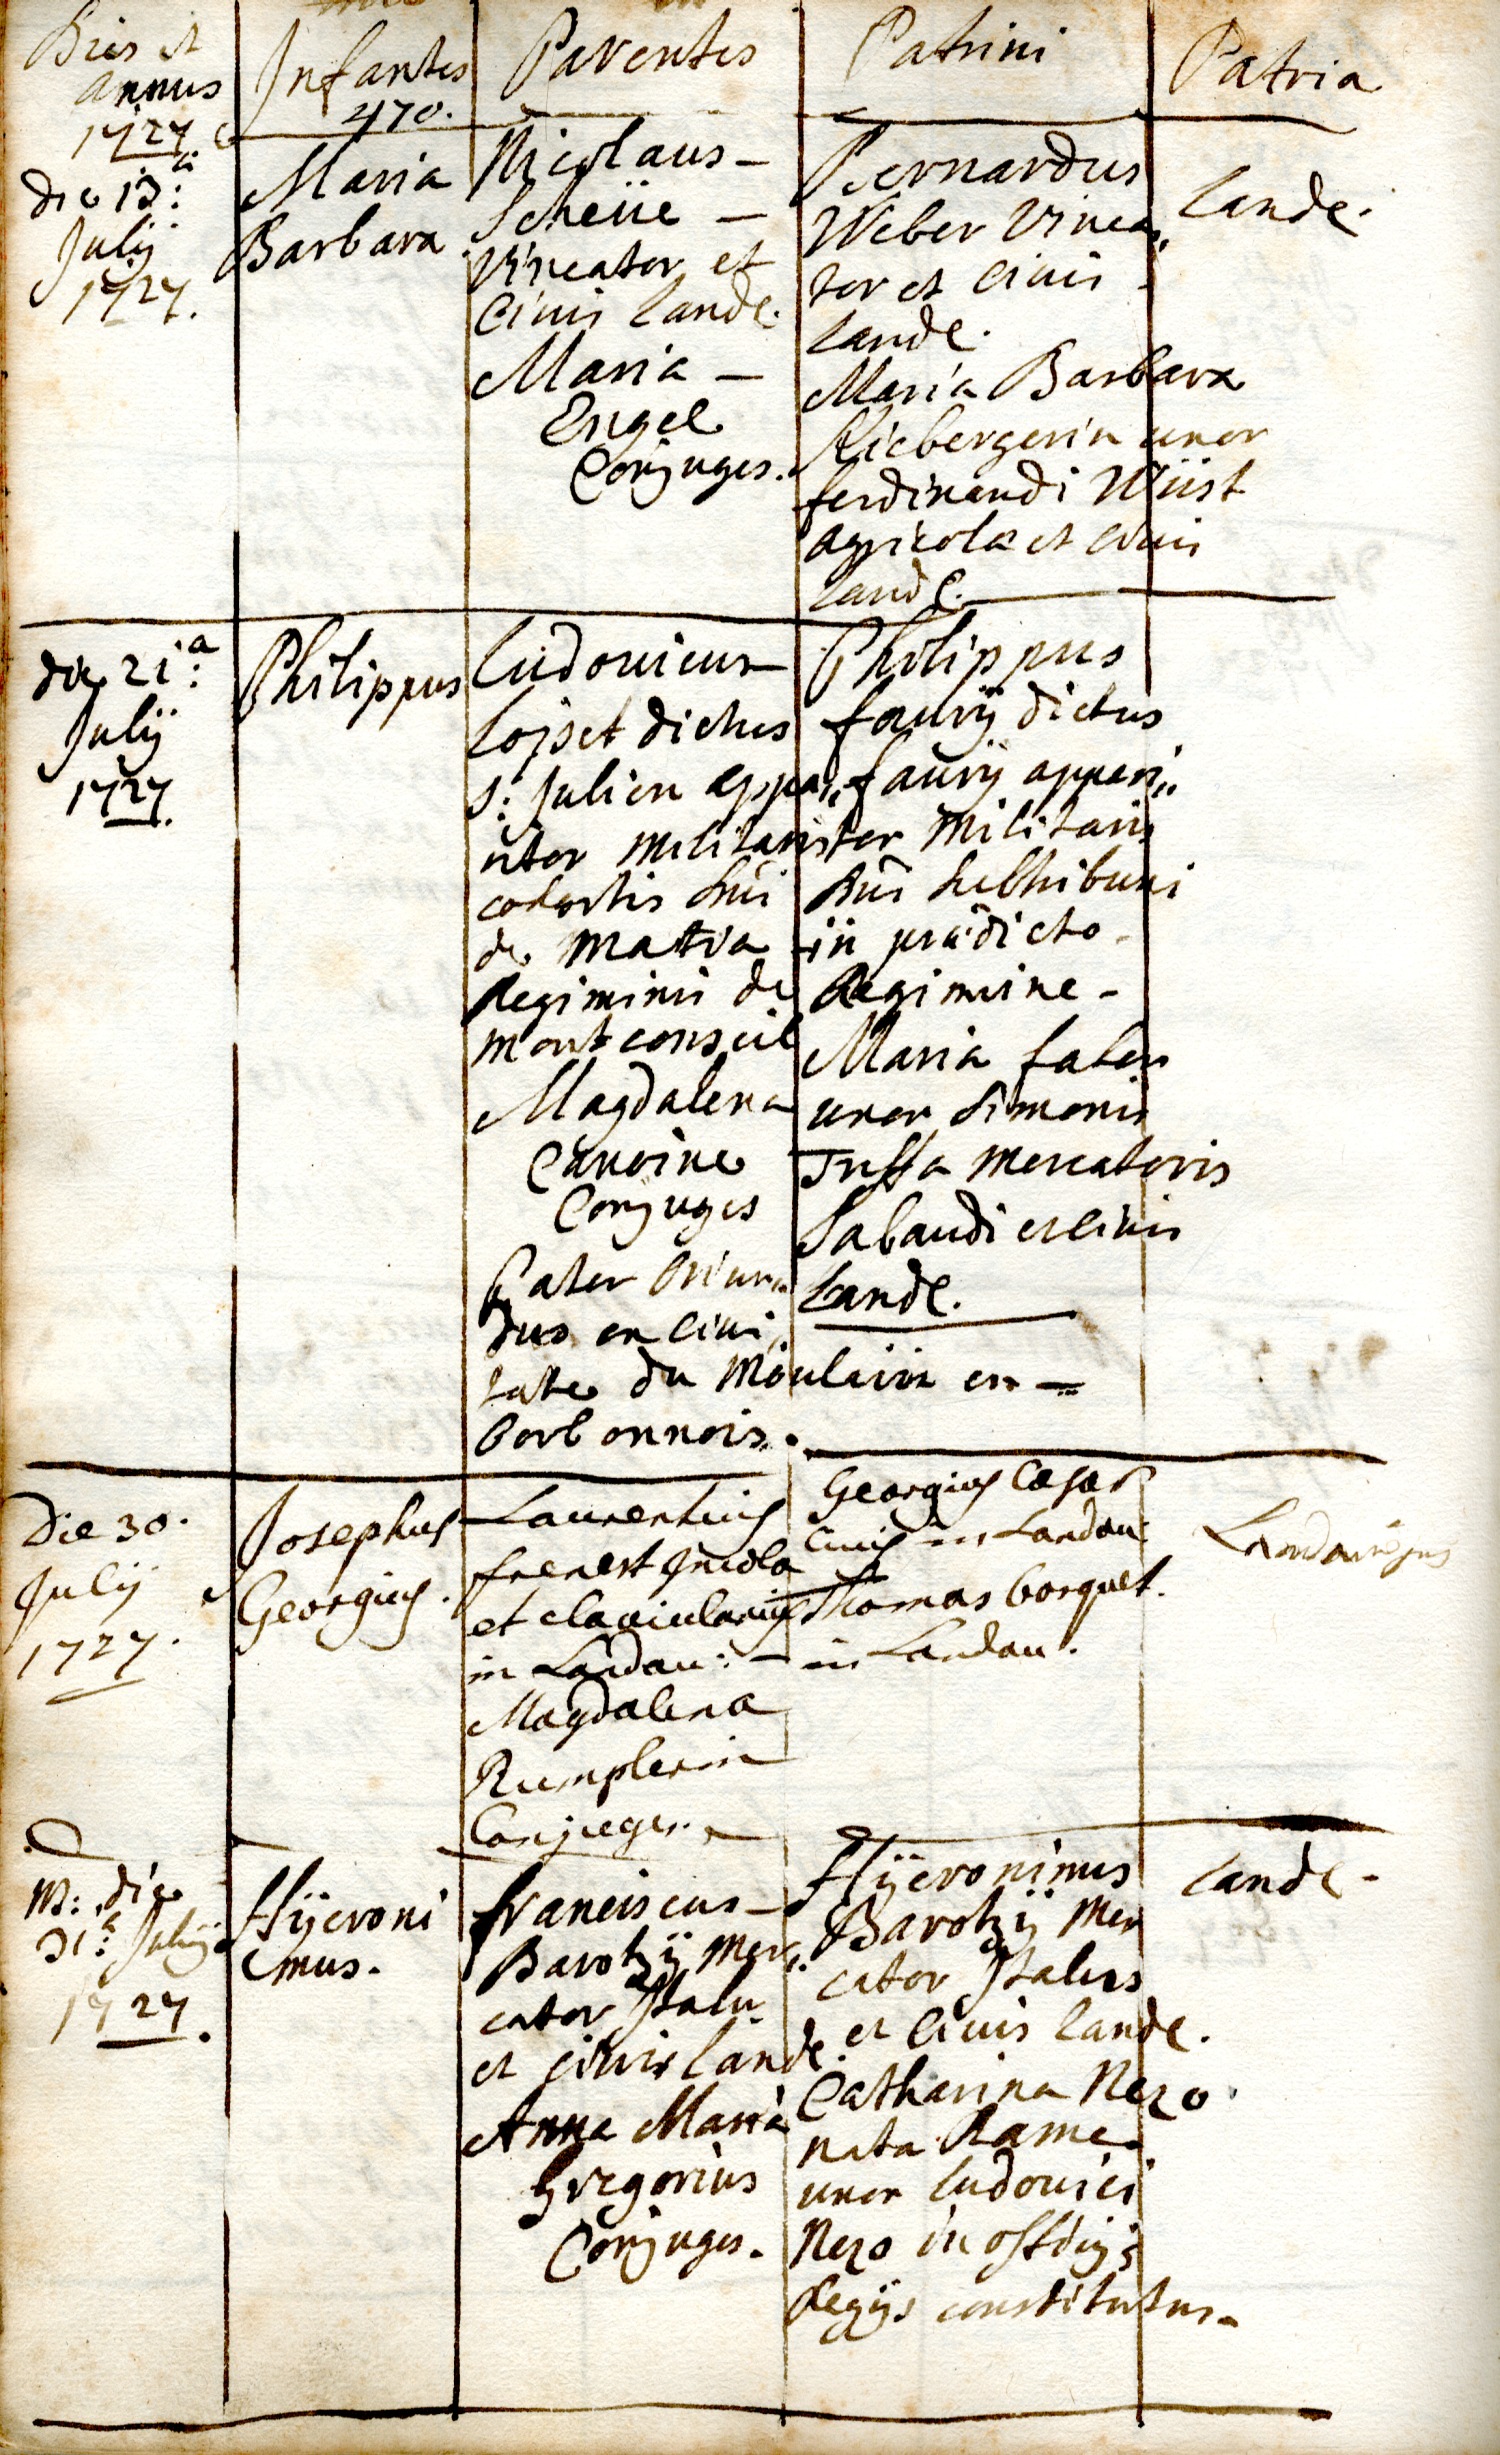 Dies et
annus
1727
Infantes
470.
Parentes
Patrini
Patria
die 13:a
Julÿ
1727.
Maria
Barbara
Nicolaus –
Scheüe –
Vineator et
Ciuis Landę.
Maria –
Engel
Conjuges.
Bernardus
Weber Vinea„
tor et Ciuis
Landę.
Maria Barbara
Kiebergerin uxor
ferdinandi Wüst
agricolæ et Ciuis
Landę.
Landę.
die 21:a
Julÿ
1727.
Philippus
Ludouicus
Lojset dictus
S: Julien appa„
ritor militaris
cohortis Dni
de Matra
Regiminis de
Montconseil
Magdalena
Canoine
Conjuges
Pater Oriun„
dus ex Ciui„
tate du Moulain en
borbonnois.
Philippus
faurÿ dictus
faurÿ appari„
tor Militaris
Dni
in prædicto
Regimine –
Maria
uxor Simonis
Mercatoris
Sabaudi et Ciuis
Landę.
Die 30.
Julÿ
1727.
Josephus
Georgius.
Laurentius
et clavicularius
in Landau: –
Magdalena
Rumplerin
Conjuges.
Georgius Cæsar
Civis in Landau
Thomas Gorquet.
in Landau.
die
31:a Julÿ
1727.
Hÿeroni
mus.
franciscus –
Barotzÿ Mer„
cator Italu
et Ciuis Landę.
Anna Maria
Gregorius
Conjuges.
Hÿeronimus
Barotzÿ Mer
cator Italus
et Ciuis Landę.
Catharina Nezo
nata Rame
uxor Ludouici
Nezo in
Regÿs constitutus.
Landę.